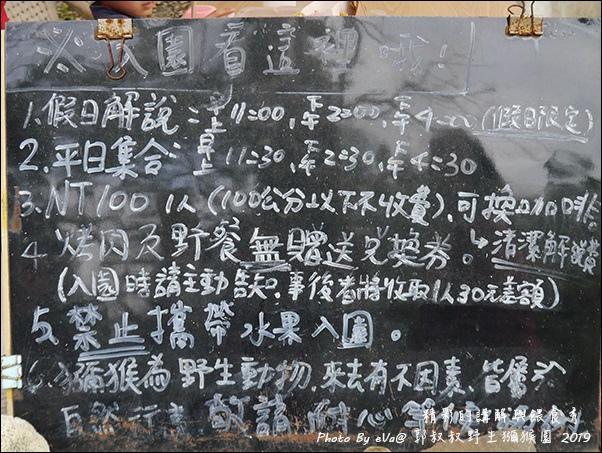 ※入園看這裡哦!
1.假日解說:早上11:00、下午2:00、下午4:00(假日限定)
2.平日集合:早上11:30、下午2:30、下午4:30
3.NT100 1人(100公分以下不收費),可換咖啡
4.烤肉及野餐無贈送兌換券。↳清潔解說費
(入園時請主動告知,事後者將收取1人30元差額)
5.禁止攜帶水果入園。
6.獼猴為野生動物,來去有不因素,皆屬於
自然行為 敬請耐心等候
精彩的講解與餵食秀
Photo By eVa@ 郭叔叔野生獼猴園 2019